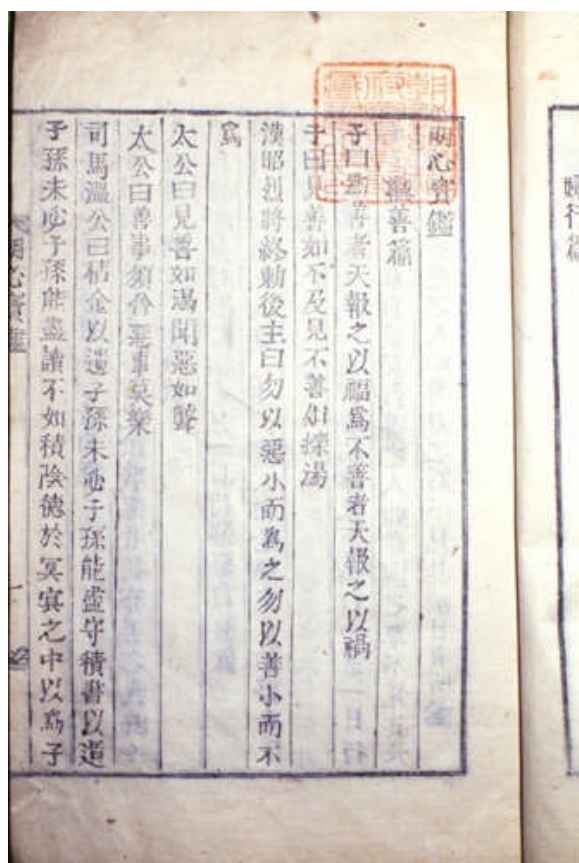 婦行篇
明心寶鑑
繼善篇
子曰爲善者天報之以福爲不善者天報之以禍
子曰見善如不及見不善如探湯
漢昭烈將終勅後主曰勿以惡小而爲之勿以善小而不
爲
太公曰見善如渴聞惡如聾
太公曰善事須貪惡事莫樂
司馬溫公曰積金以遺子孫未必子孫能盡守積書以遺
子孫未必子孫能盡讀不如積陰德於冥冥之中以爲子
明心寶鑑
一